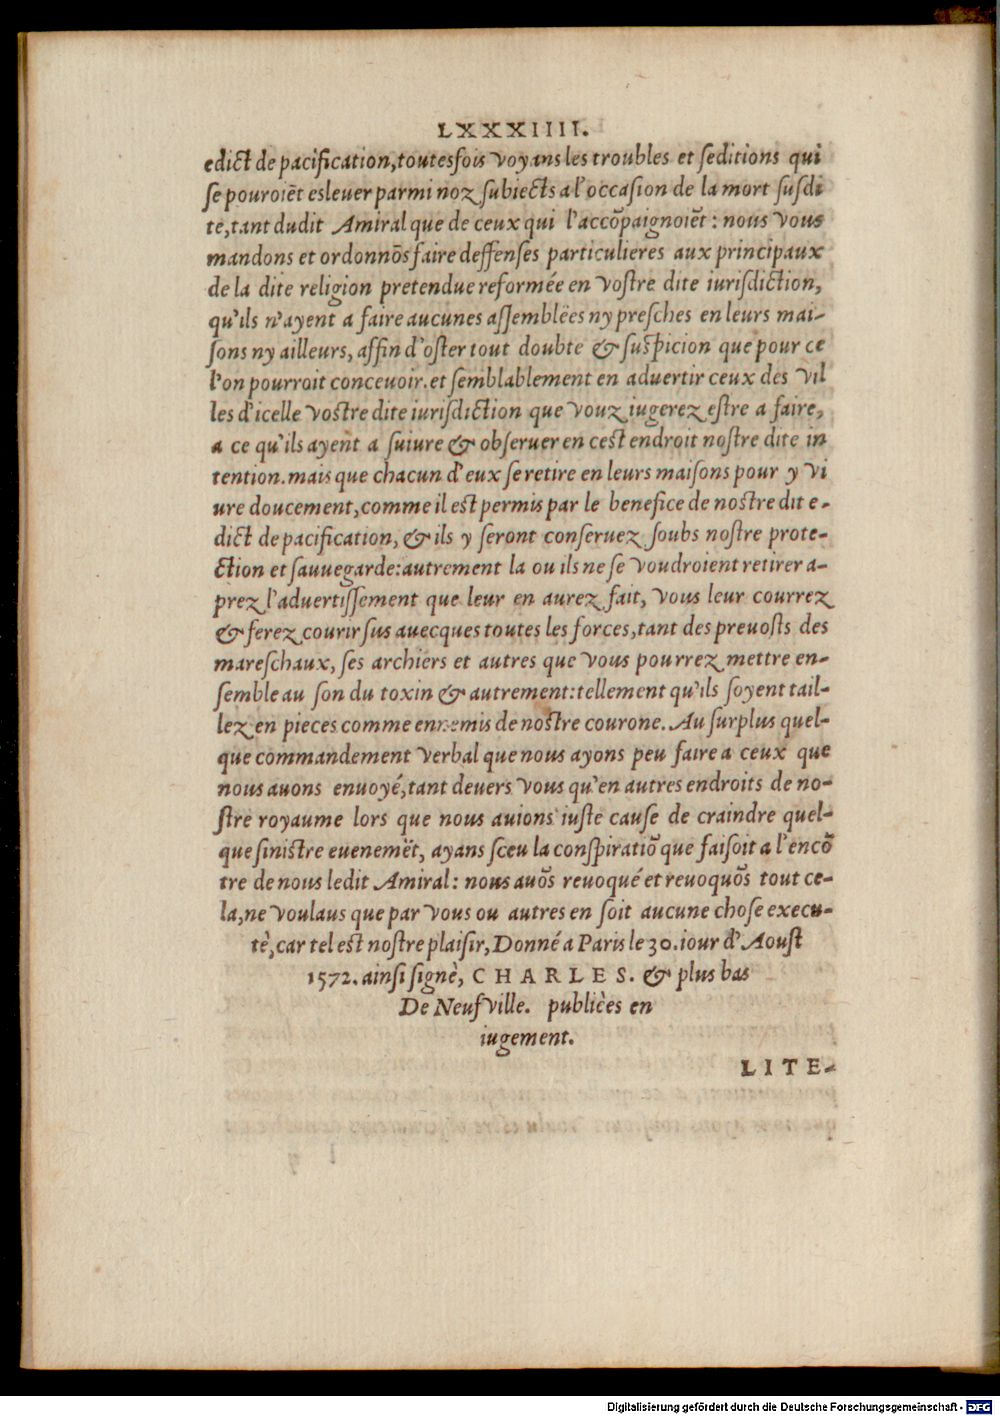 LXXXIIII.
edict de pacification, toutesfois voyans les troubles et ſeditions qui
ſe pouroiēt eslever parmi noz ſubiects a l'occaſion de la mort ſuſdi
te, tant dudit Amiral que de ceux qui l'accōpaignoiēt : nous vous
mandons et ordonnōs faire deffenſes particulieres aux principaux
de la dite religion pretendue reformée en voſtre dite iuriſdiction,
qu'ils n'ayent a faire aucunes aſſemblëes ny preſches en leurs mai-
ſons ny ailleurs, affin d'oſter tout doubte & ſuſpicion que pour ce
l'on pourroit conceuoir. et ſemblablement en advertir ceux des vil
les d'icelle voſtre dite iuriſdiction que vouz iugerez eſtre a faire,
a ce qu'ils ayent a ſuiure & obſeruer en ceſt endroit noſtre dite in
tention. mais que chacun d'eux ſe retire en leurs maiſons pour y vi
ure doucement, comme il eſt permis par le benefice de noſtre dit e-
dict de pacification, & ils y ſeront conſeruez ſoubs noſtre prote-
ction et ſauuegarde: autrement la ou ils ne ſe voudroient retirer a-
prez l'advertiſſement que leur en aurez fait, vous leur courrez
& ferez courir ſus avecques toutes les forces, tant des prevoſts des
mareſchaux, ſes archiers et autres que vous pourrez mettre en-
ſemble au ſon du toxin & autrement: tellement qu'ils ſoyent tail-
lez en pieces comme ennemis de noſtre courone. Au ſurplus quel-
que commandement verbal que nous ayons peu faire a ceux que
nous auons enuoyé, tant deuers vous qu'en autres endroits de no-
ſtre royaume lors que nous auions iuſte cauſe de craindre quel-
que ſiniſtre euenemēt, ayans ſceu la conſpiratiō que faiſoit a l'encō
tre de nous ledit Amiral : nous auōs reuoqué et reuoquōs tout ce-
la, ne voulaus que par vous ou autres en ſoit aucune choſe execu-
tè, car tel eſt noſtre plaiſir, Donné a Paris le 30. iour d'Aouſt
1572. ainſi ſignè, CHARLES. & plus bas
De Neufville. publièes en
iugement.
LITE-
Digitalisierung gefördert durch die Deutsche Forschungsgemeinschaft - DFG